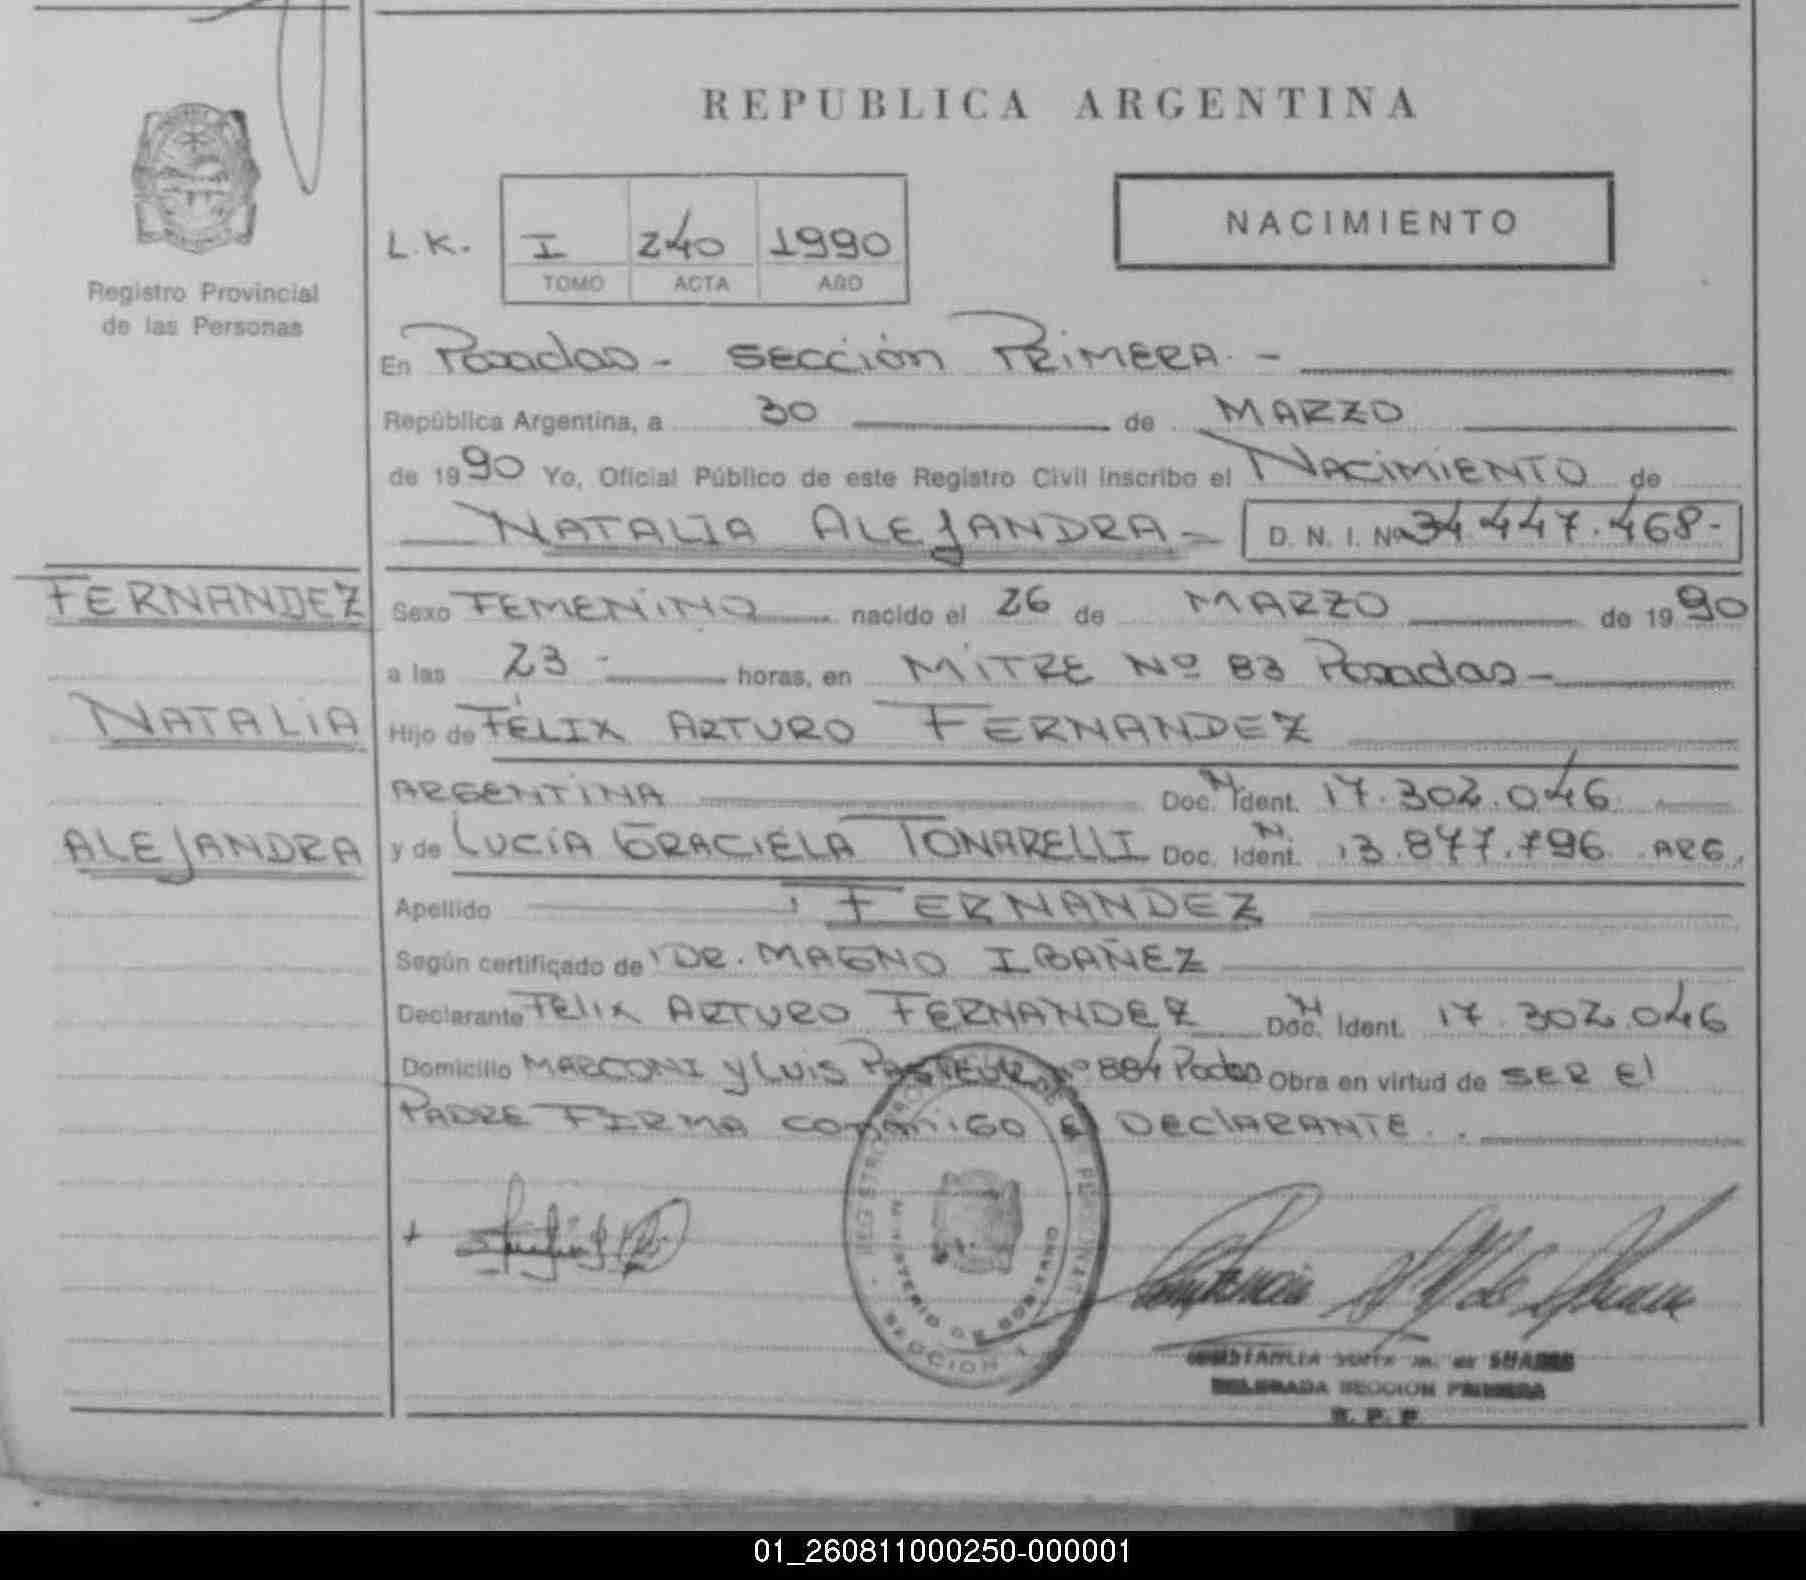 REPUBLICA ARGENTINA
Registro Provincial
de las Personas
L.K. I 240 1990
TOMO ACTA AÑO
NACIMIENTO
En Posadas - SECCIÓN PRIMERA. -
República Argentina, a 30 de MARZO
de 1990 Yo, Oficial Público de este Registro Civil inscribo el NACIMIENTO de
NATALIA ALEJANDRA - D. N. I. Nº 34.447.468-
FERNANDEZ
NATALIA
ALEJANDRA
Sexo FEMENINO nacido el 26 de MARZO de 1990
a las 23 - horas, en MITRE Nº 83 Posadas -
Hijo de FÉLIX ARTURO FERNANDEZ
ARGENTINA Doc. N. Ident. 17.302.046
y de LUCÍA GRACIELA TONARELLI Doc. N. Ident. 13.877.796 ARG.
Apellido FERNANDEZ
Según certificado de DR. MAGNO IBAÑEZ
Declarante FELIX ARTURO FERNANDEZ Doc. N Ident. 17.302.046
Domicilio MARCONI y LUIS PASTEUR Nº 884 Pdas Obra en virtud de SER El
PADRE FIRMA CONMIGO El DEClARANTE. .
REGISTRO PROVINCIAL DE LAS PERSONAS
MINISTERIO DE GOBIERNO
SECCION 1
DELEGADA SECCION PRIMERA
R. P. P.
01_260811000250-000001